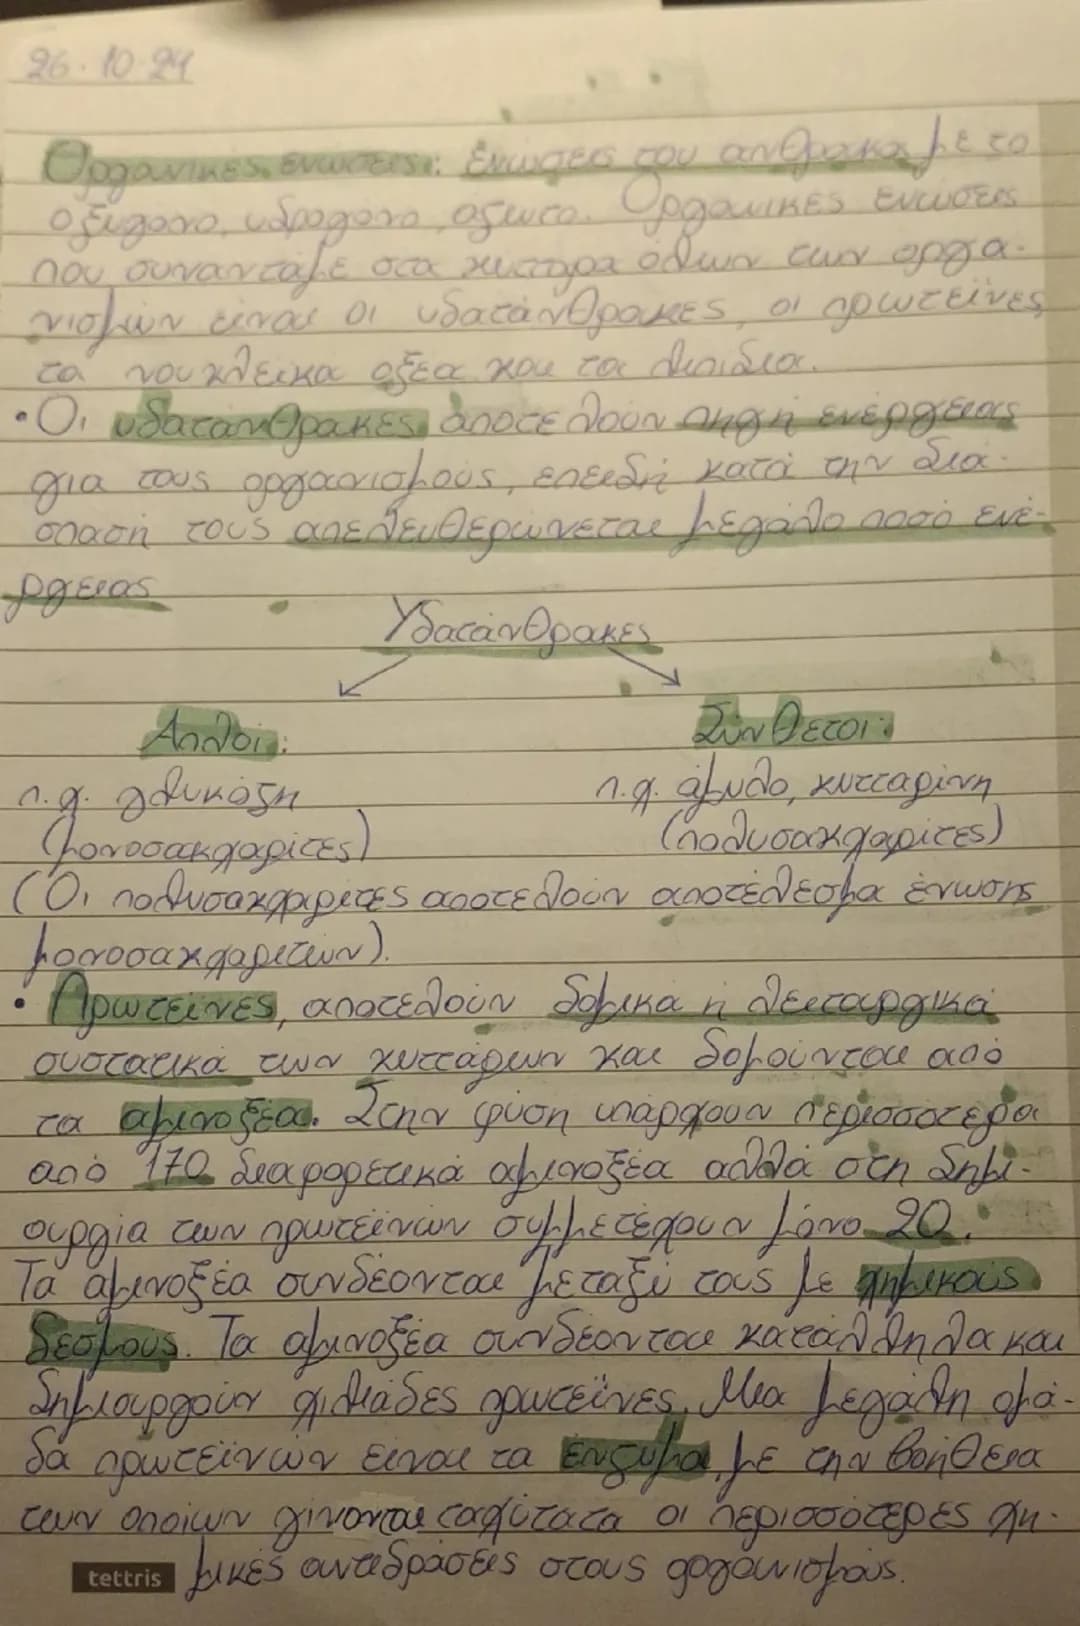 26.10.24
Οργανικές ενώσεις: Ενώσεις του άνθρακα με το
οξυγόνο, υδρογόνο, άζωτο. Οργανικές ενώσεις
που συναντάμε στα κύτταρα όλων των οργα-
νισμών είναι οι υδατάνθρακες, οι πρωτεΐνες,
τα νουκλεικά οξέα και τα λιπίδια.
• Οι υδατάνθρακες αποτελούν πηγή ενέργειας
για τους οργανισμούς, επειδή κατά την διά-
σπασή τους απελευθερώνεται μεγάλο ποσό ενέ-
ργειας
Υδατάνθρακες
Απλοί: Σύνθετοι:
π.χ. γλυκόζη π.χ. άμυλο, κυτταρίνη
(μονοσακχαρίτες) (πολυσακχαρίτες)
(Οι πολυσακχαρίτες αποτελούν αποτέλεσμα ένωσης
μονοσακχαριτών).
• Πρωτεΐνες, αποτελούν δομικά ή λειτουργικά
συστατικά των κυττάρων και δομούνται από
τα αμινοξέα. Στην φύση υπάρχουν περισσότερα
από 170 διαφορετικά αμινοξέα αλλά στη δημι-
ουργία των πρωτεϊνών συμμετέχουν μόνο 20.
Τα αμινοξέα συνδέονται μεταξύ τους με χημικούς
δεσμούς. Τα αμινοξέα συνδέονται κατάλληλα και
δημιουργούν χιλιάδες πρωτεΐνες. Μια μεγάλη ομά-
δα πρωτεϊνών είναι τα ένζυμα, με την βοήθεια
των οποίων γίνονται ταχύτατα οι περισσότερες χη-
μικές αντιδράσεις στους οργανισμούς.
tettris